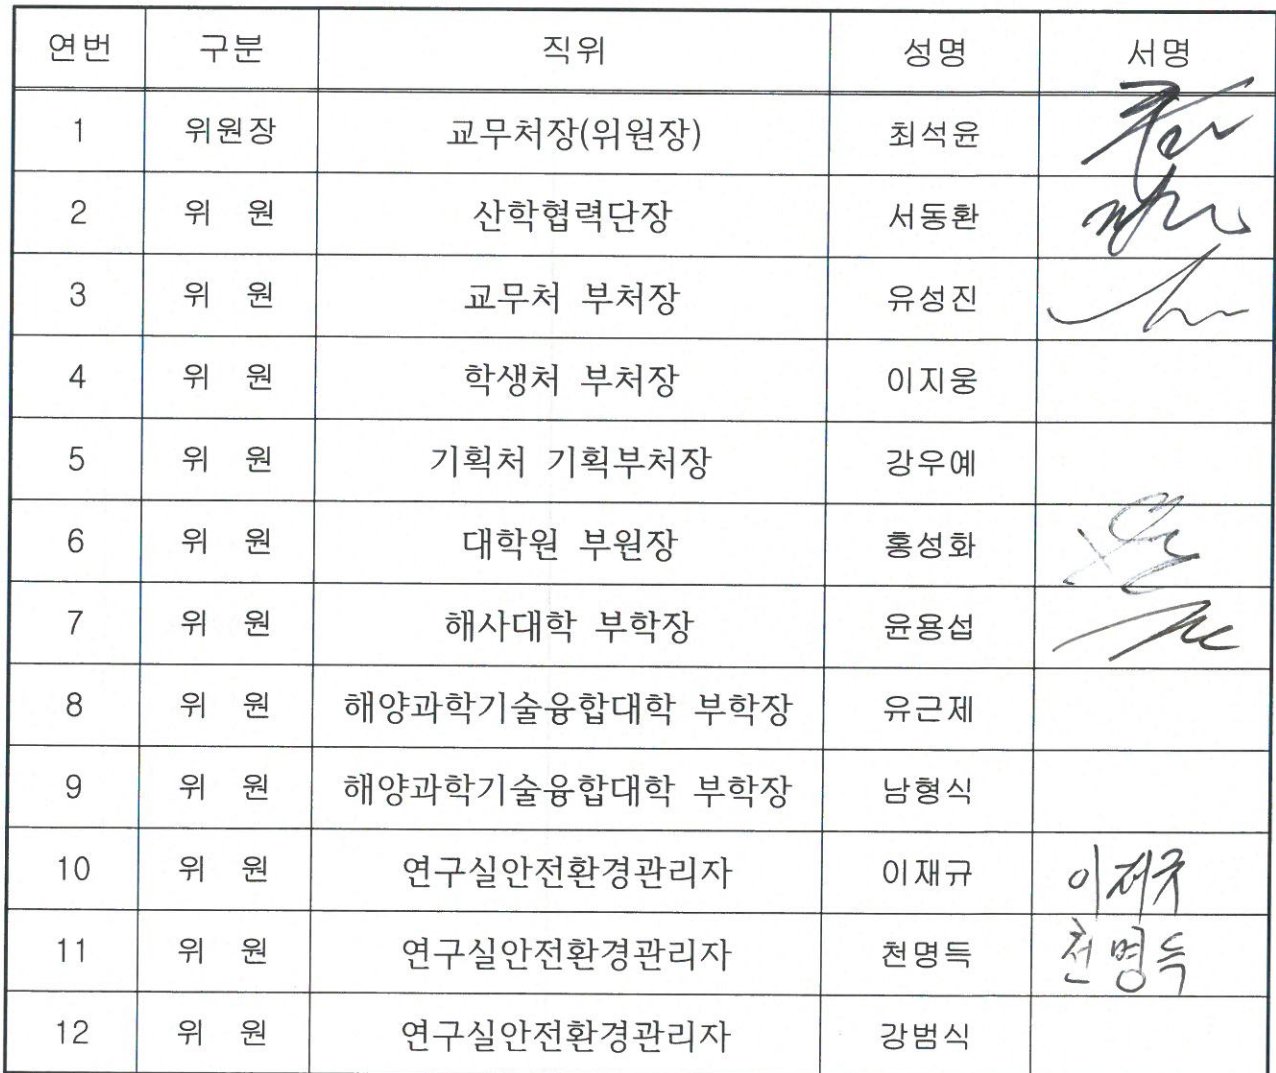 연번 구분 직위 성명 서명
1 위원장 교무처장(위원장) 최석윤
2 위 원 산학협력단장 서동환
3 위 원 교무처 부처장 유성진
4 위 원 학생처 부처장 이지웅
5 위 원 기획처 기획부처장 강우예
6 위 원 대학원 부원장 홍성화
7 위 원 해사대학 부학장 윤용섭
8 위 원 해양과학기술융합대학 부학장 유근제
9 위 원 해양과학기술융합대학 부학장 남형식
10 위 원 연구실안전환경관리자 이재규 이재규
11 위 원 연구실안전환경관리자 천명득 천명득
12 위 원 연구실안전환경관리자 강범식